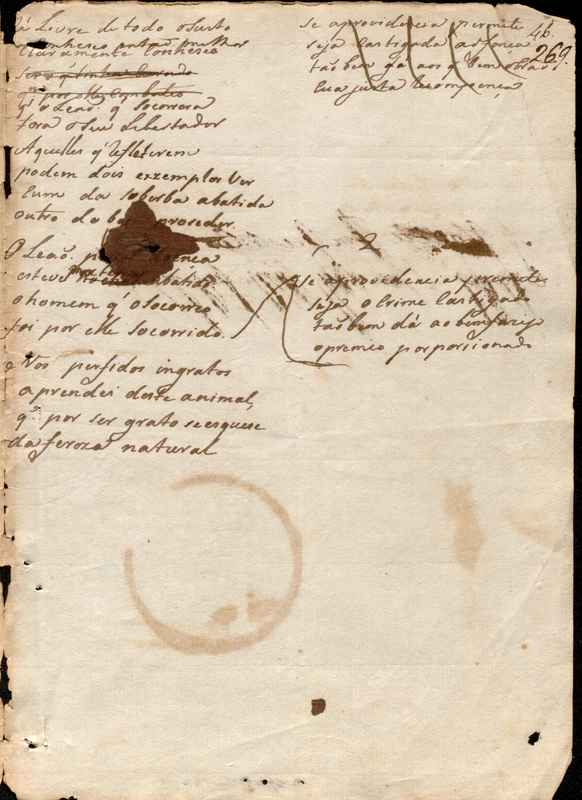 já Livre de todo o susto
Claramente Conheseo
q' o Leaõ q' o socorrera
fora o seu libertador
Aquelles q' refletirem
podem dois exzemplos Ver
hum da soberba abatida
outro do bom proseder
O Leaõ, p
esteve abatido
o homem q' o socorreo
foi por elle socorrido.
Vos perfidos ingratos
aprendei deste animal,
q' por ser grato se esquese
da feroza natural
se aprovidencia permete
seja Castigada
taõ bem dá aos q' bem obraõ
hua justa recompença
46.
269.
se aprovedencia premete
seja o Crime Castigado
taõ bem dá ao
opremeo porporsionado